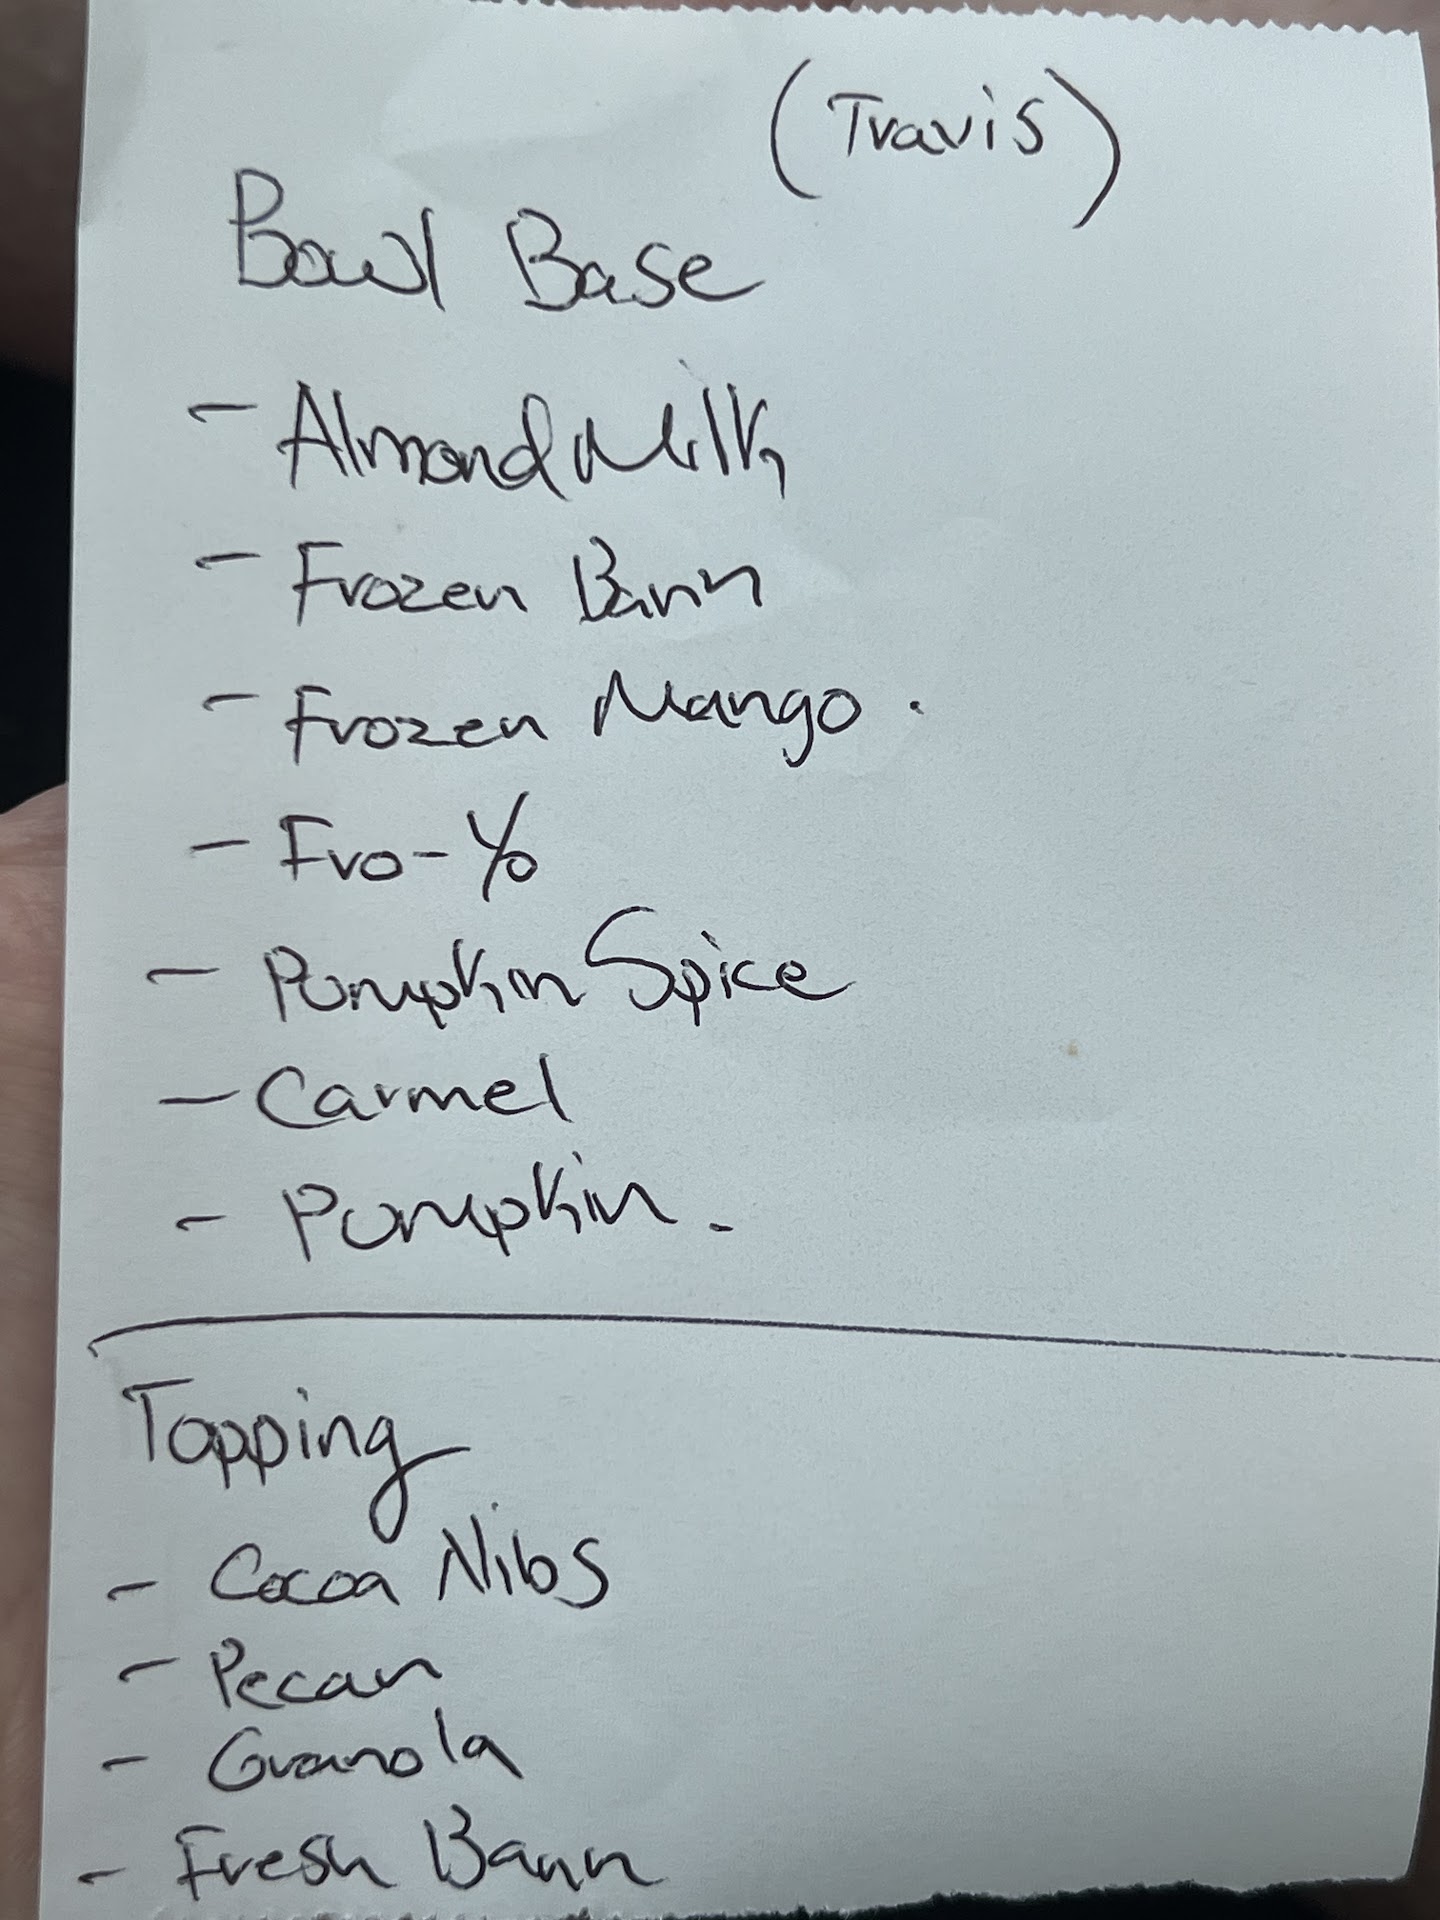 (Travis)
Bowl Base
- Almond Milk
- Frozen Bann
- Frozen Mango.
- Fro-Yo
- Pumpkin Spice
- Carmel
- Pumpkin.
Topping
- Cocoa Nibs
- Pecan
- Granola
- Fresh Bann